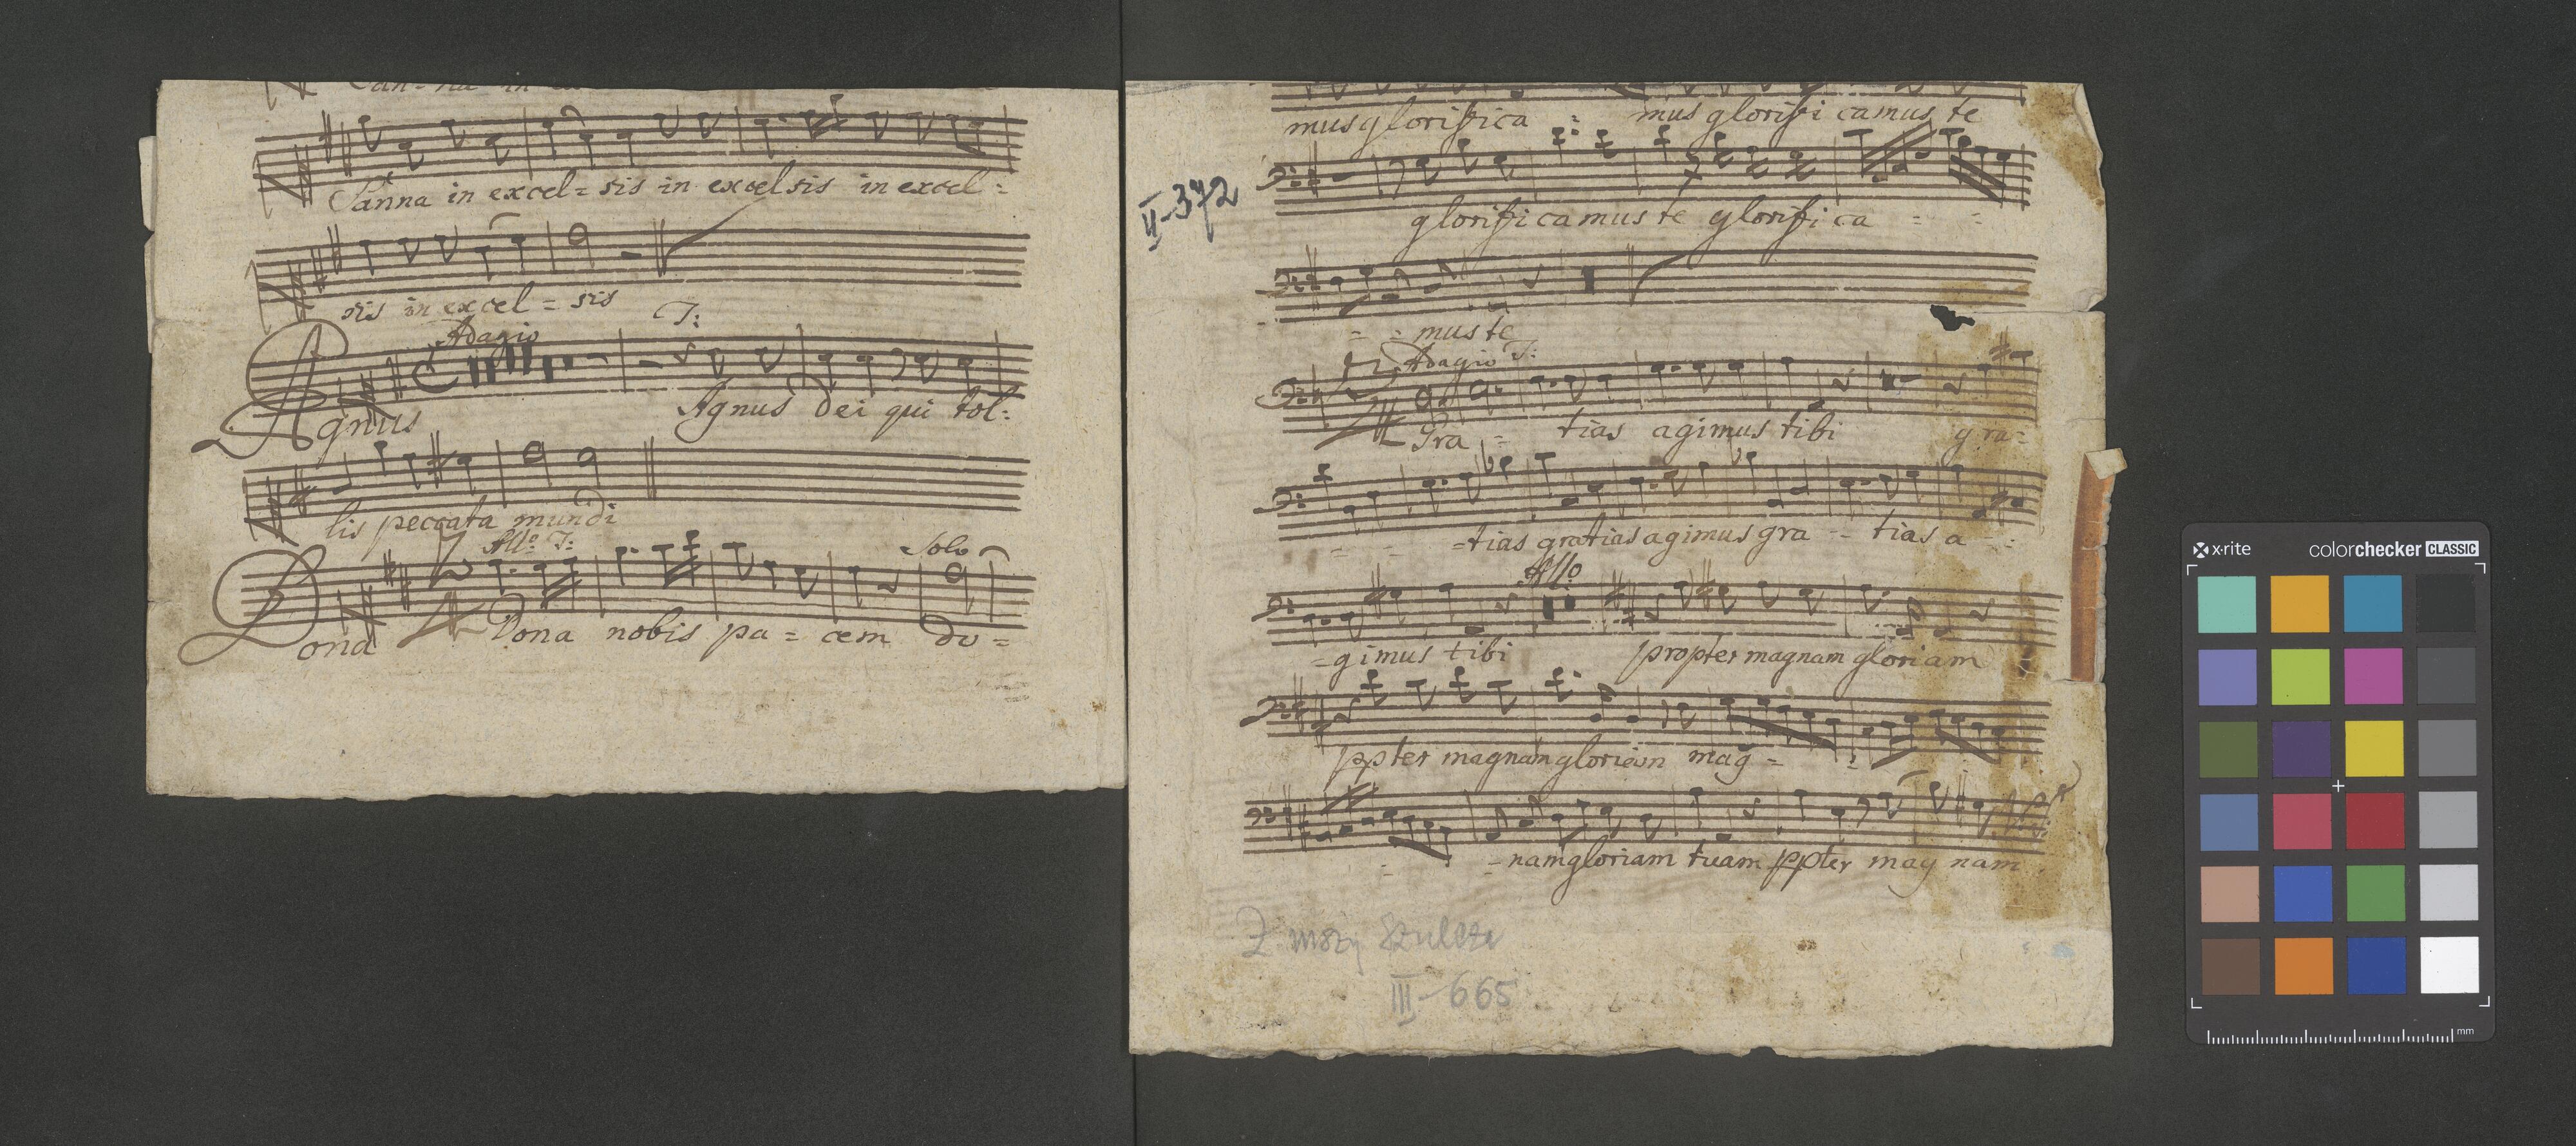 Sanna in excel = sis in excelsis in excel =
sis in excel = sis
Adagio T:
Agnus Agnus Dei qui tol:
lis peccata mundi
Allo: T: Solo
Dona Dona nobis pa = cem do =
mus glorifica : mus glorifi camus te
II-372
glorificamus te glorifi ca = =
= : mus te
Adagio T:
Gra = tias agimus tibi gra=
= = =tias gratias agimus gra -- tias a - :
Allo
=gimus tibi propter magnam gloriam
ppter magnam gloriam mag = :
= =namgloriam tuam ppter mag nam
Z mszy Szulcza
III-665
x-rite colorchecker CLASSIC
mm